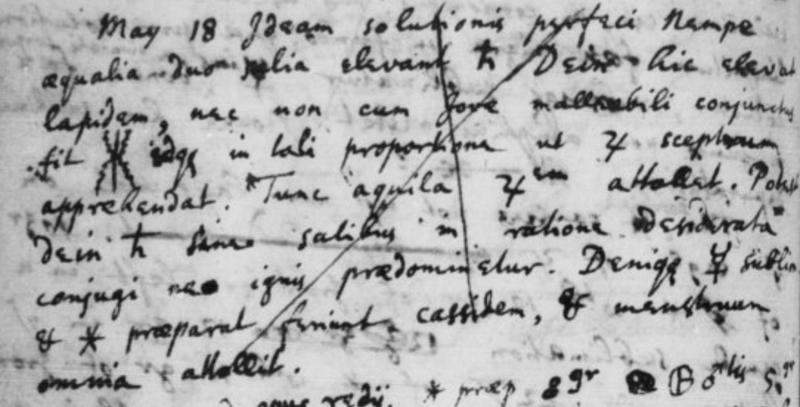 May 18 Ideam solutionis perfeci Nempe
æqualia duo salia elevant ♄ Dein hic elevat
lapidem, nec non cum Jove malleabili conjunctus
fit idqȝ in tali proportione ut ♃ sceptrum
apprehendat. Tunc aquila ♃em attollat. Potest
dein ♄ sine salibus in ratione desiderata
conjugi ne ignis prædominetur. Deniqȝ ☿ sublim
& ✳ præparat feriunt cassidem, & menstruum
omnia attollit.
redij. ✳ præp 8gr